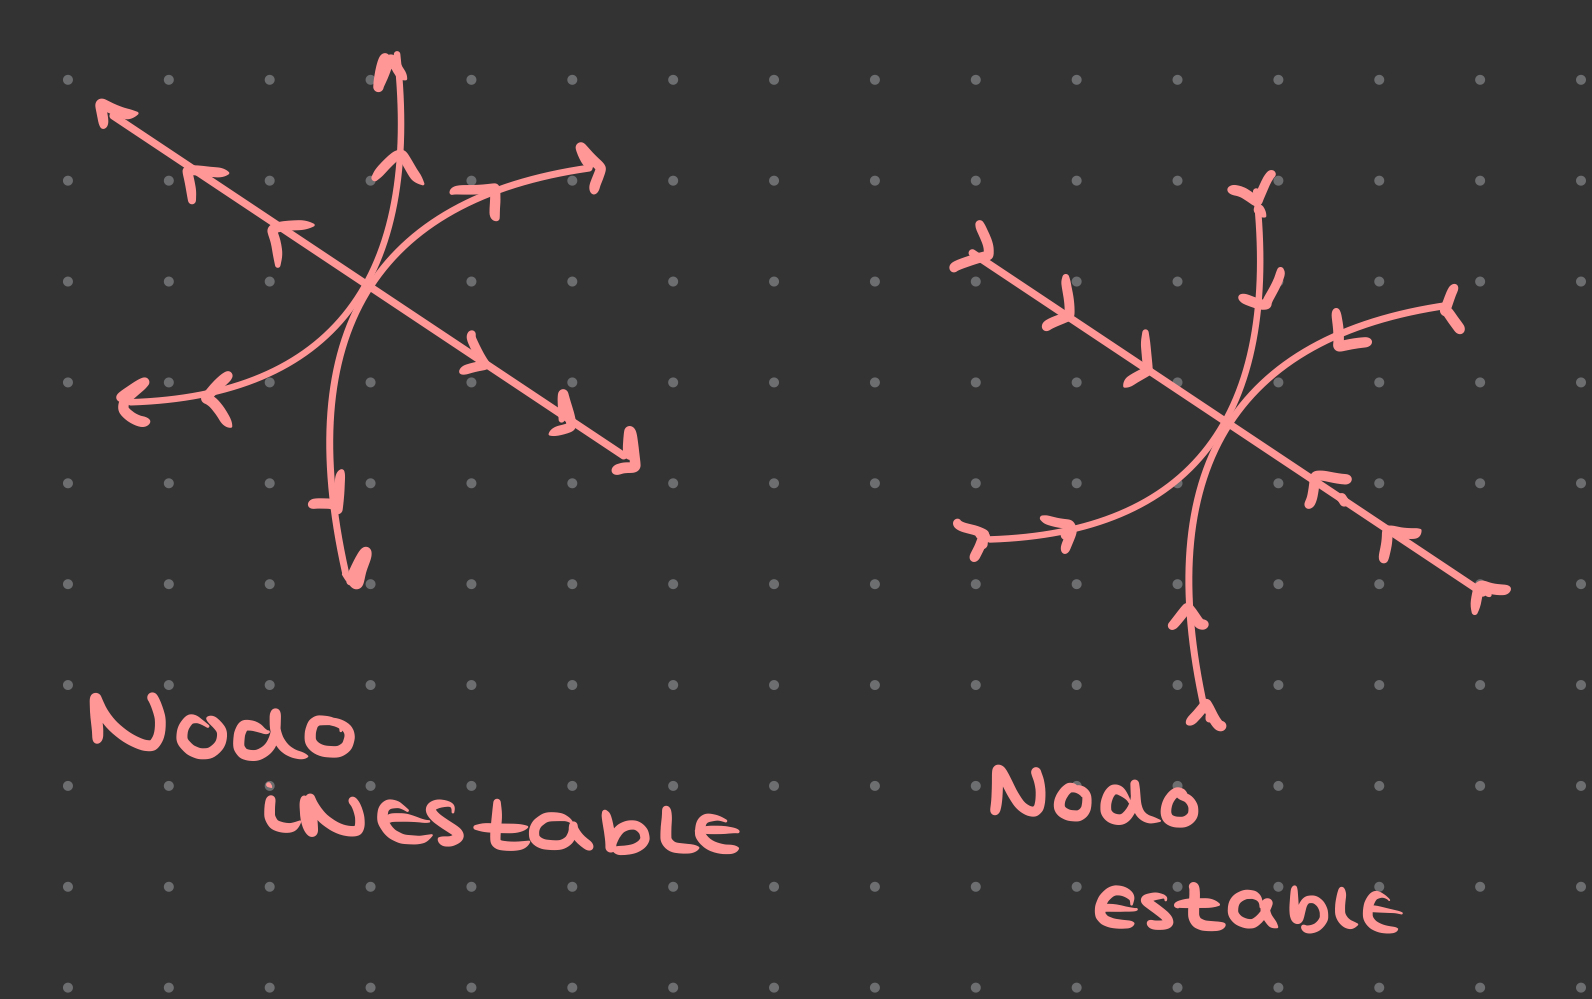 Nodo
inestable
Nodo
estable